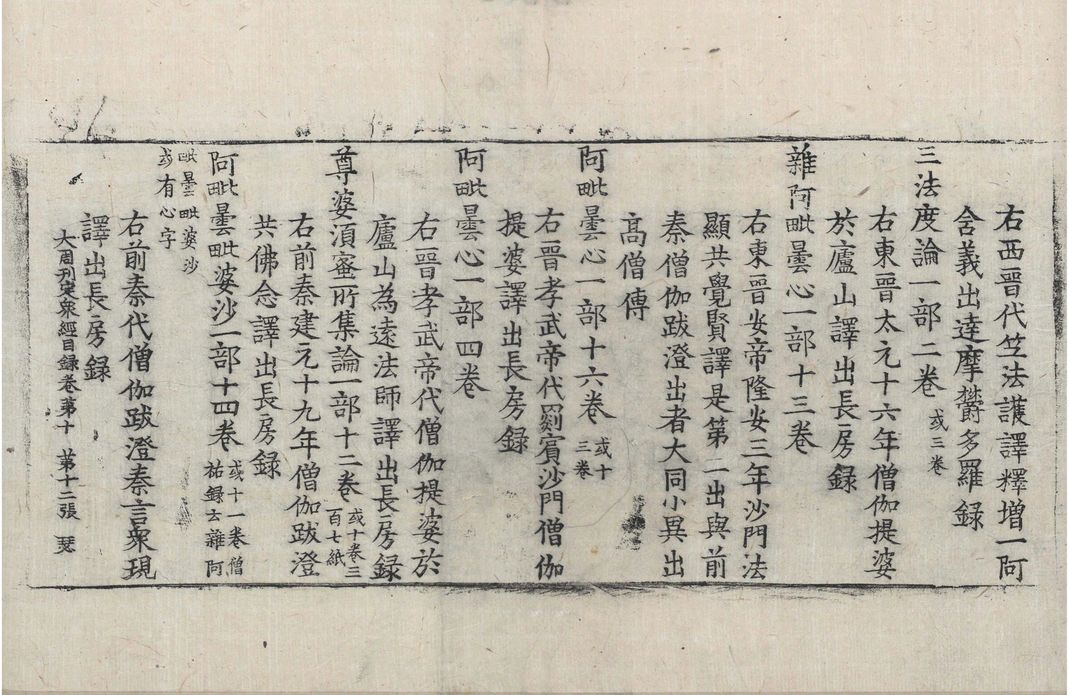 右西晉代竺法護譯釋增一阿
含義出達摩欝多羅錄
三法度論一部二卷 或三卷
右東晉太元十六年僧伽提婆
於廬山譯出長房錄
雜阿毗曇心一部十三卷
右東晉安帝隆安三年沙門法
顯共覺賢譯是第二出與前
秦僧伽跋澄出者大同小異出
高僧傳
阿毗曇心一部十六卷 或十三卷
右晉孝武帝代罽賓沙門僧伽
提婆譯出長房錄
阿毗曇心一部四卷
右晉孝武帝代僧伽提婆於
廬山為遠法師譯出長房錄
尊婆須蜜所集論一部十二卷 或十卷三百七紙
右前秦建元十九年僧伽跋澄
共佛念譯出長房錄
阿毗曇毗婆沙一部十四卷 或十一卷僧祐錄云雜阿
毗曇毗婆沙或有心字
右前秦代僧伽跋澄秦言衆現
譯出長房錄
大周刊定衆經目錄卷第十 第十二張 瑟